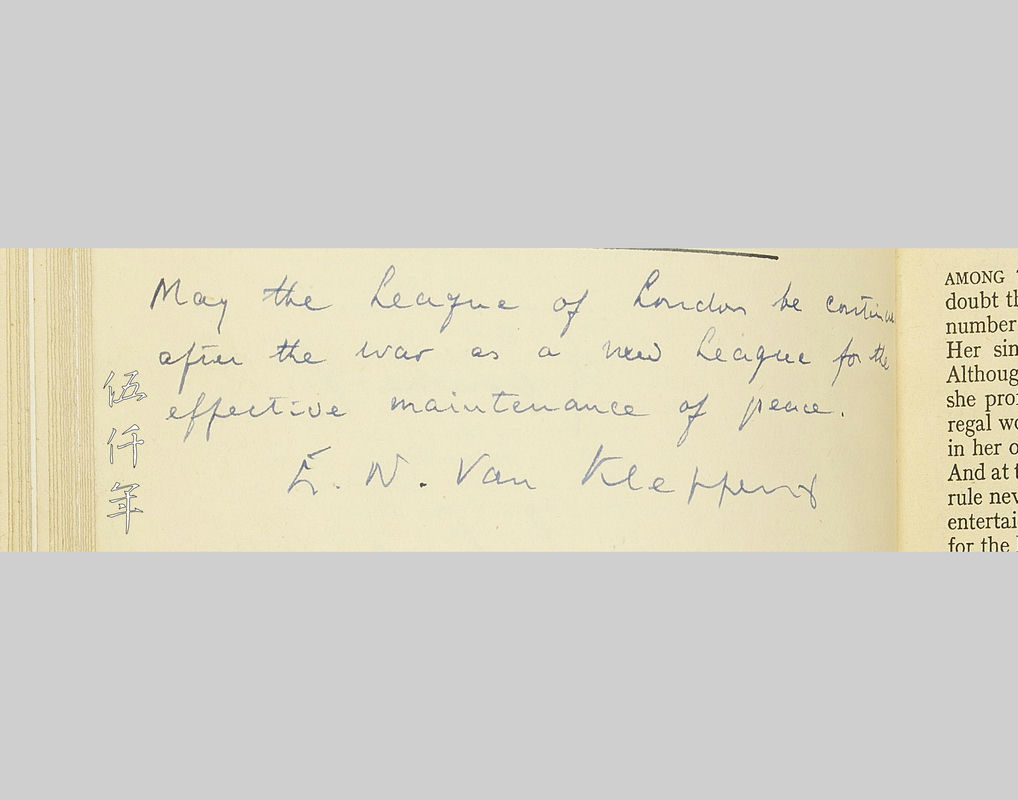 May the League of London be continued
after the war as a new League for the
effective maintenance of peace.
E. N. Van Kleffens
伍仟年
AMONG
doubt th
number
Her sin
Althoug
she pro
regal wo
in her o
And at t
rule nev
entertai
for the